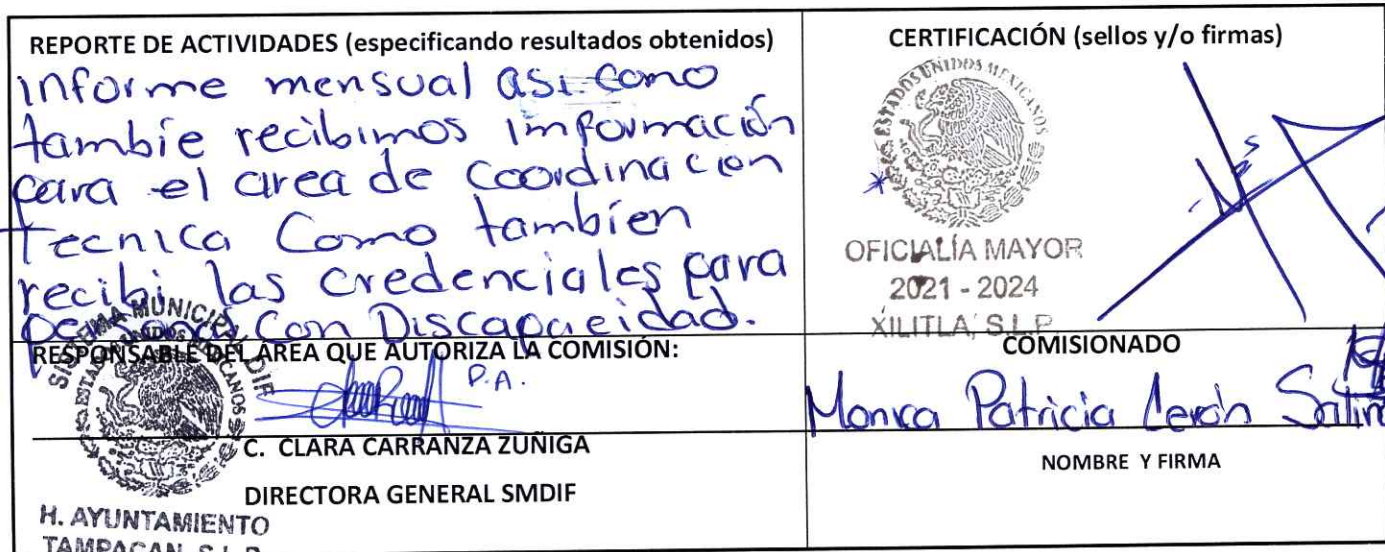 REPORTE DE ACTIVIDADES (especificando resultados obtenidos)
informe mensual asi como
tambie recibimos imformación
para el area de Coordinacion
Tecnica Como tambien
recibi las credenciales para
personas Con Discapacidad.
CERTIFICACIÓN (sellos y/o firmas)
ESTADOS UNIDOS MEXICANOS
OFICIALÍA MAYOR
2021 - 2024
XILITLA, S.L.P.
RESPONSABLE DEL ÁREA QUE AUTORIZA LA COMISIÓN:
P.A.
SISTEMA MUNICIPAL DIF
ESTADOS UNIDOS MEXICANOS
C. CLARA CARRANZA ZUÑIGA
DIRECTORA GENERAL SMDIF
H. AYUNTAMIENTO
TAMPACAN, S.L.P.
COMISIONADO
Monica Patricia
NOMBRE Y FIRMA